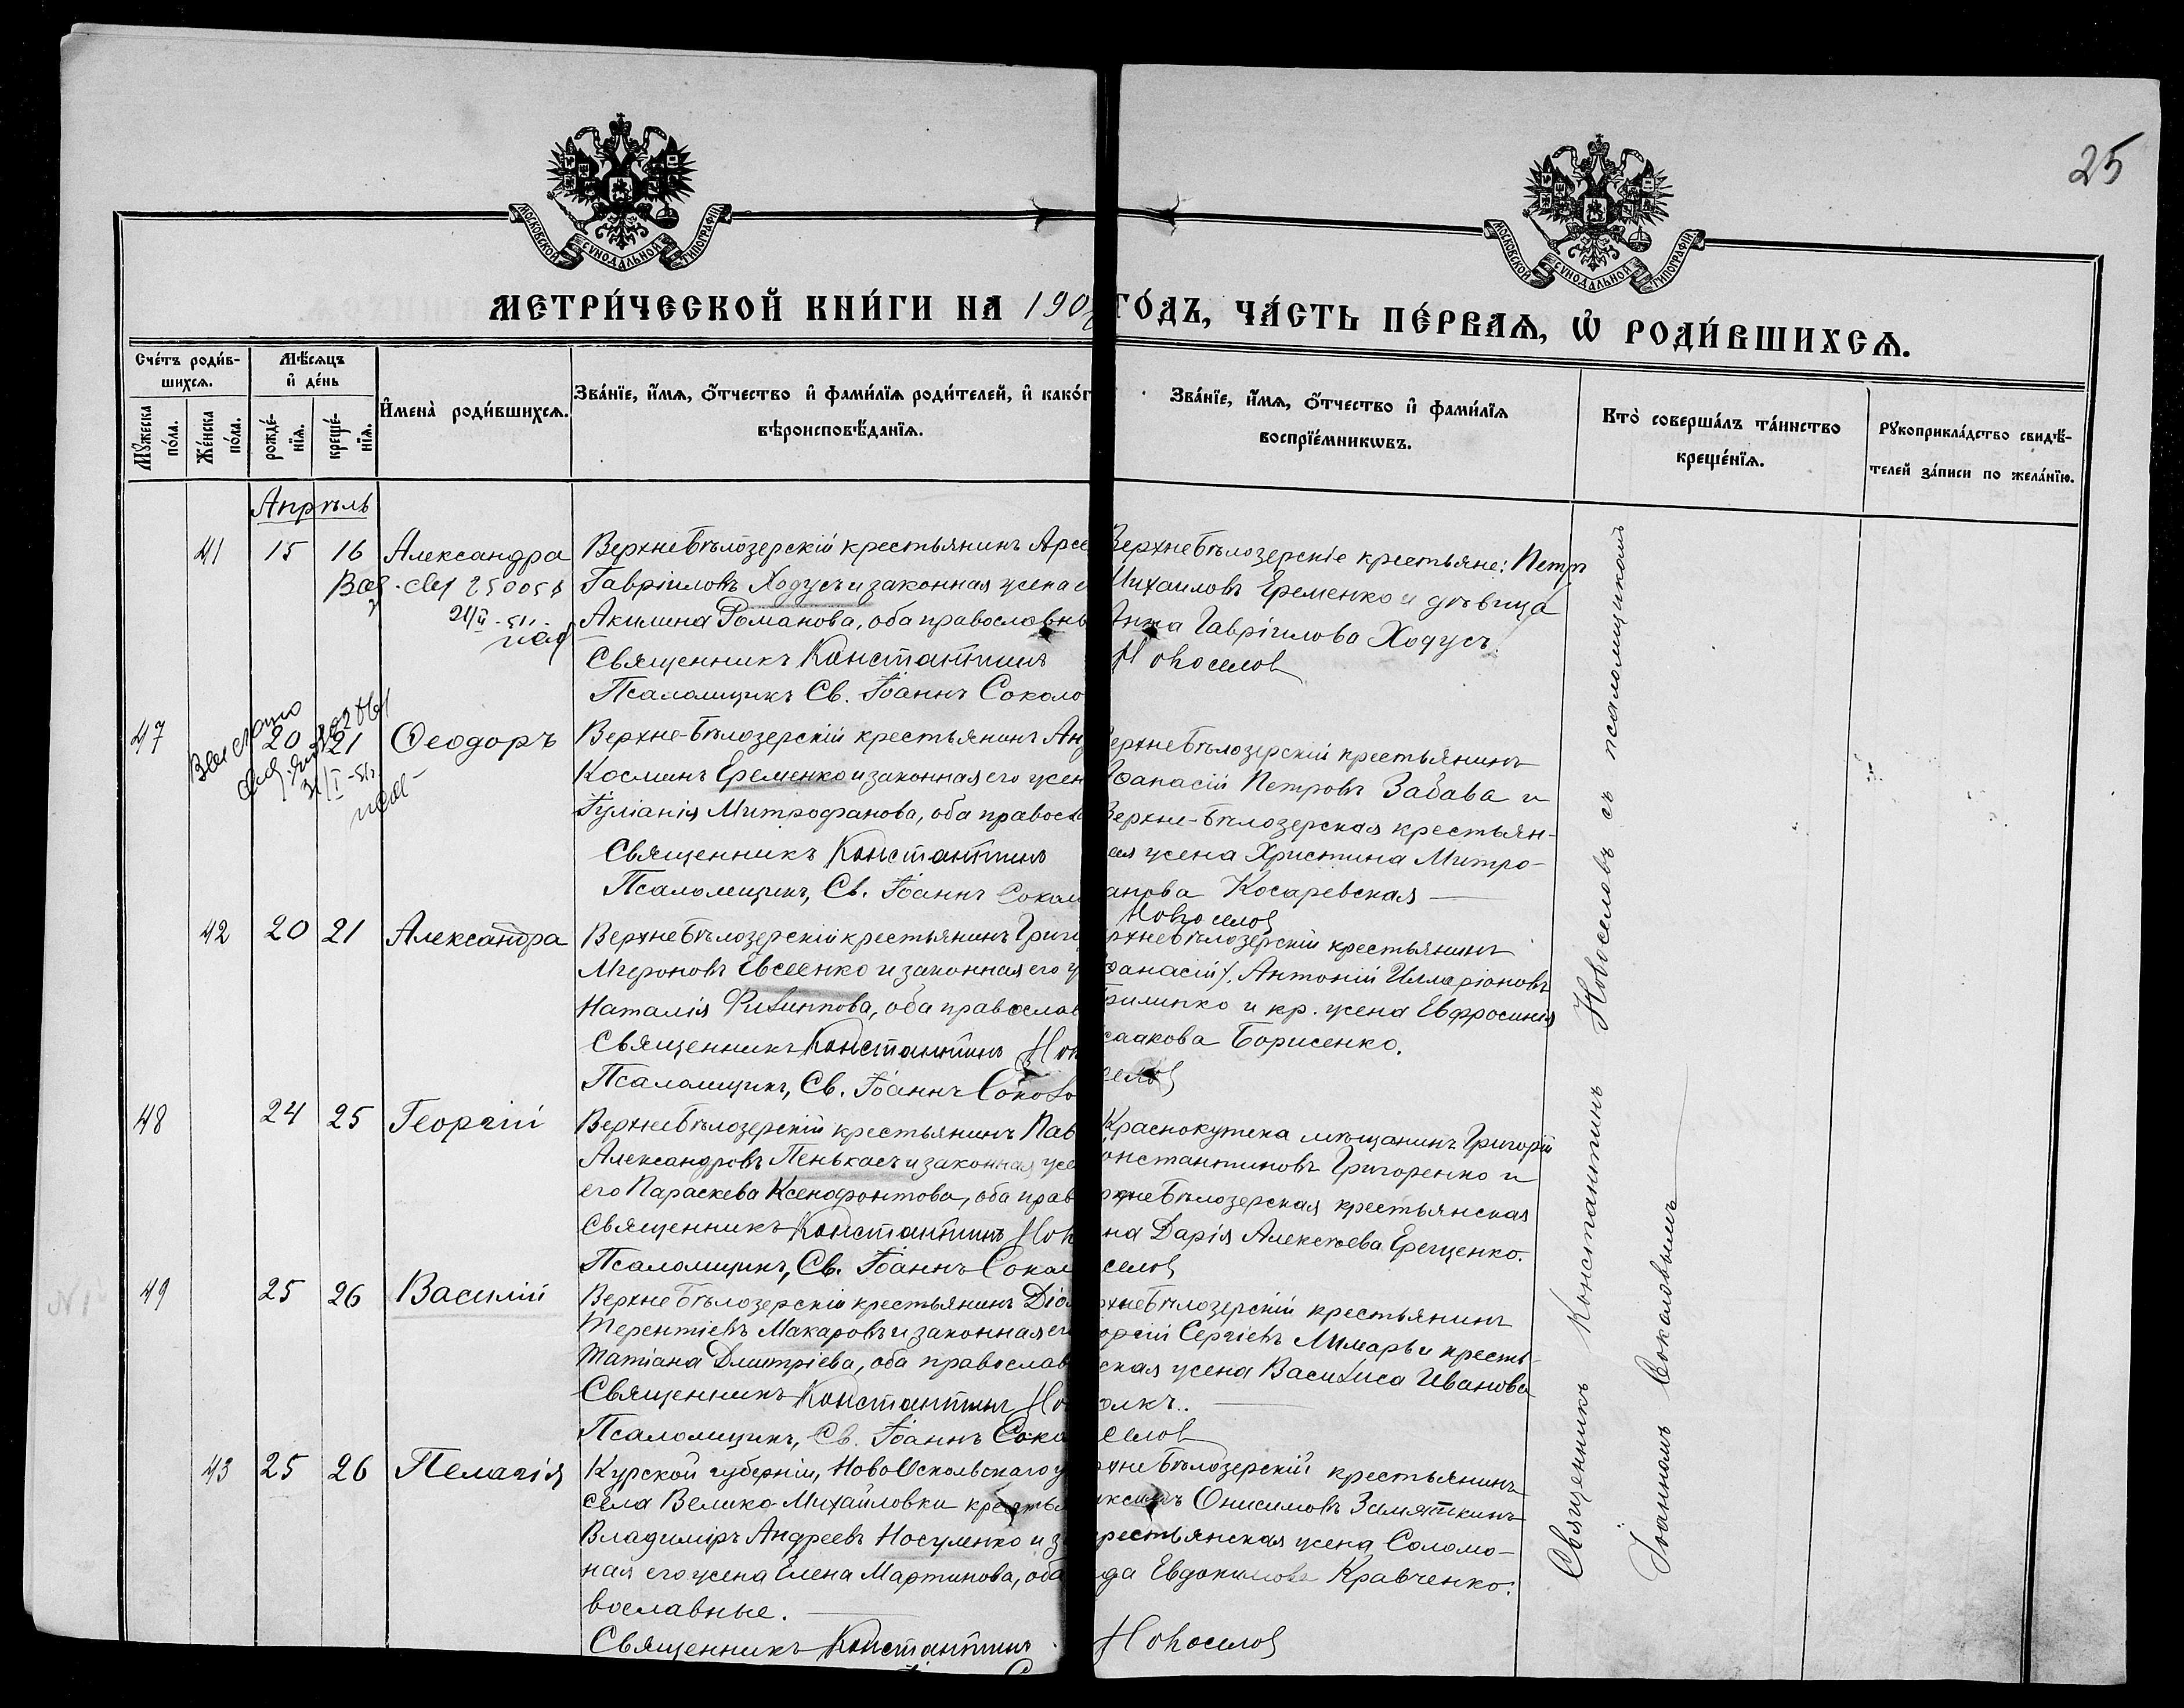 25
МОСКОВСКОЙ СѴНОДАЛЬНОЙ ТИПОГРАФІИ
МОСКОВСКОЙ СѴНОДАЛЬНОЙ ТИПОГРАФІИ
МЕТРИ́ЧЕСКОЙ КНИ́ГИ НА 190 ГО́ДЪ, ЧА́СТЬ ПЕ́РВАѦ, Ѽ РОДИ́ВШИХСѦ.
Сче́тъ роди́в-
шихсѧ.
Мѣ́сѧцъ
и҆ де́нь
Мꙋ́жеска по́ла.
Же́нска по́ла.
рожде́-нїѧ.
креще́-нїѧ.
И҆мена̀ роди́вшихсѧ.
Зва́нїе, и҆́мѧ, ѻ҆́тчество и҆ фами́лїѧ роди́телей, и҆ како́г
вѣроисповѣ́данїѧ.
Зва́нїе, и҆́мѧ, ѻ҆́тчество и҆ фами́лїѧ
воспрїе́мникѡвъ.
Кто̀ соверша́лъ та́инство
креще́нїѧ.
Рꙋкоприкла́дство свидѣ́-
телей за́писи по жела́нїю.
Апрѣль
41 15 16 Александра
Верхнебѣлозерскій крестьянинъ Арсе
Гавріиловъ Ходусъ и законная жена е
Акилина Романова, оба православны
Священникъ Константинъ
Псаломщикъ Св. Іоаннъ Соколо
Верхнебѣлозерскіе крестьяне: Петръ
Михаиловъ Еременко и дѣвица
Анна Гавріилова Ходусъ.
Новоселов
47 20 21 Ѳеодоръ
Верхне-бѣлозерскій крестьянинъ Анд
Косминъ Еременко и законная его жен
Іуліанія Митрофанова, оба правосл
Священникъ Константинъ
Псаломщикъ, Св. Іоаннъ Сокол
ерхнебѣлозерскій крестьянинъ
ѳанасій Петровъ Забава и
Верхне-бѣлозерская крестьян-
ая жена Христина Митро-
анова Косаревская
Новоселов
42 20 21 Александра
Верхнебѣлозерскій крестьянинъ Григо
Мѵроновъ Евсеенко и законная его ж
Наталія Филиппова, оба православ
Священникъ Константинъ Нов
Псаломщикъ, Св. Іоаннъ Соколо
рхнебѣлозерскій крестьянинъ
ѳанасій). Антоній Илларіоновъ
и кр. жена Евфросинія
саакова Борисенко.
селов
48 24 25 Георгій
Верхнебѣлозерскій крестьянинъ Пав
Александровъ Пенькасъ и законная же
его Параскева Ксенофонтова, оба прав
Священникъ Константинъ Нов
Псаломщикъ, Св. Іоаннъ Сокол
Краснокутска мѣщанинъ Григорій
онстантиновъ Григоренко и
рхнебѣлозерская крестьянская
на Дарія Алексѣева Ерещенко.
селов
№1
49 25 26 Василій
Верхнебѣлозерскій крестьянинъ Діо
Терентіевъ Макаровъ и законная ег
Татіана Дмитріева, оба православ
Священникъ Константинъ Но
Псаломщикъ, Св. Іоаннъ Соко
рхнебѣлозерскій крестьянинъ
оргій Сергіевъ Лимарь и кресть-
ская жена Василиса Иванова
олкъ.
селов
43 25 26 Пелагія
Курской губерніи, НовоОскольскаго у
села Велико-Михайловки крестья
Владиміръ Андреевъ Носуленко и за
ная его жена Елена Мартинова, оба
вославные.
Священникъ Константинъ
рхнебѣлозерскій крестьянинъ
ксимъ Онисимовъ Замяткинъ
крестьянская жена Соломо-
да Евдокимова Кравченко.
Новоселов
Священникъ Константинъ Новоселовъ съ псаломщикомъ
Іоанномъ Соколовымъ